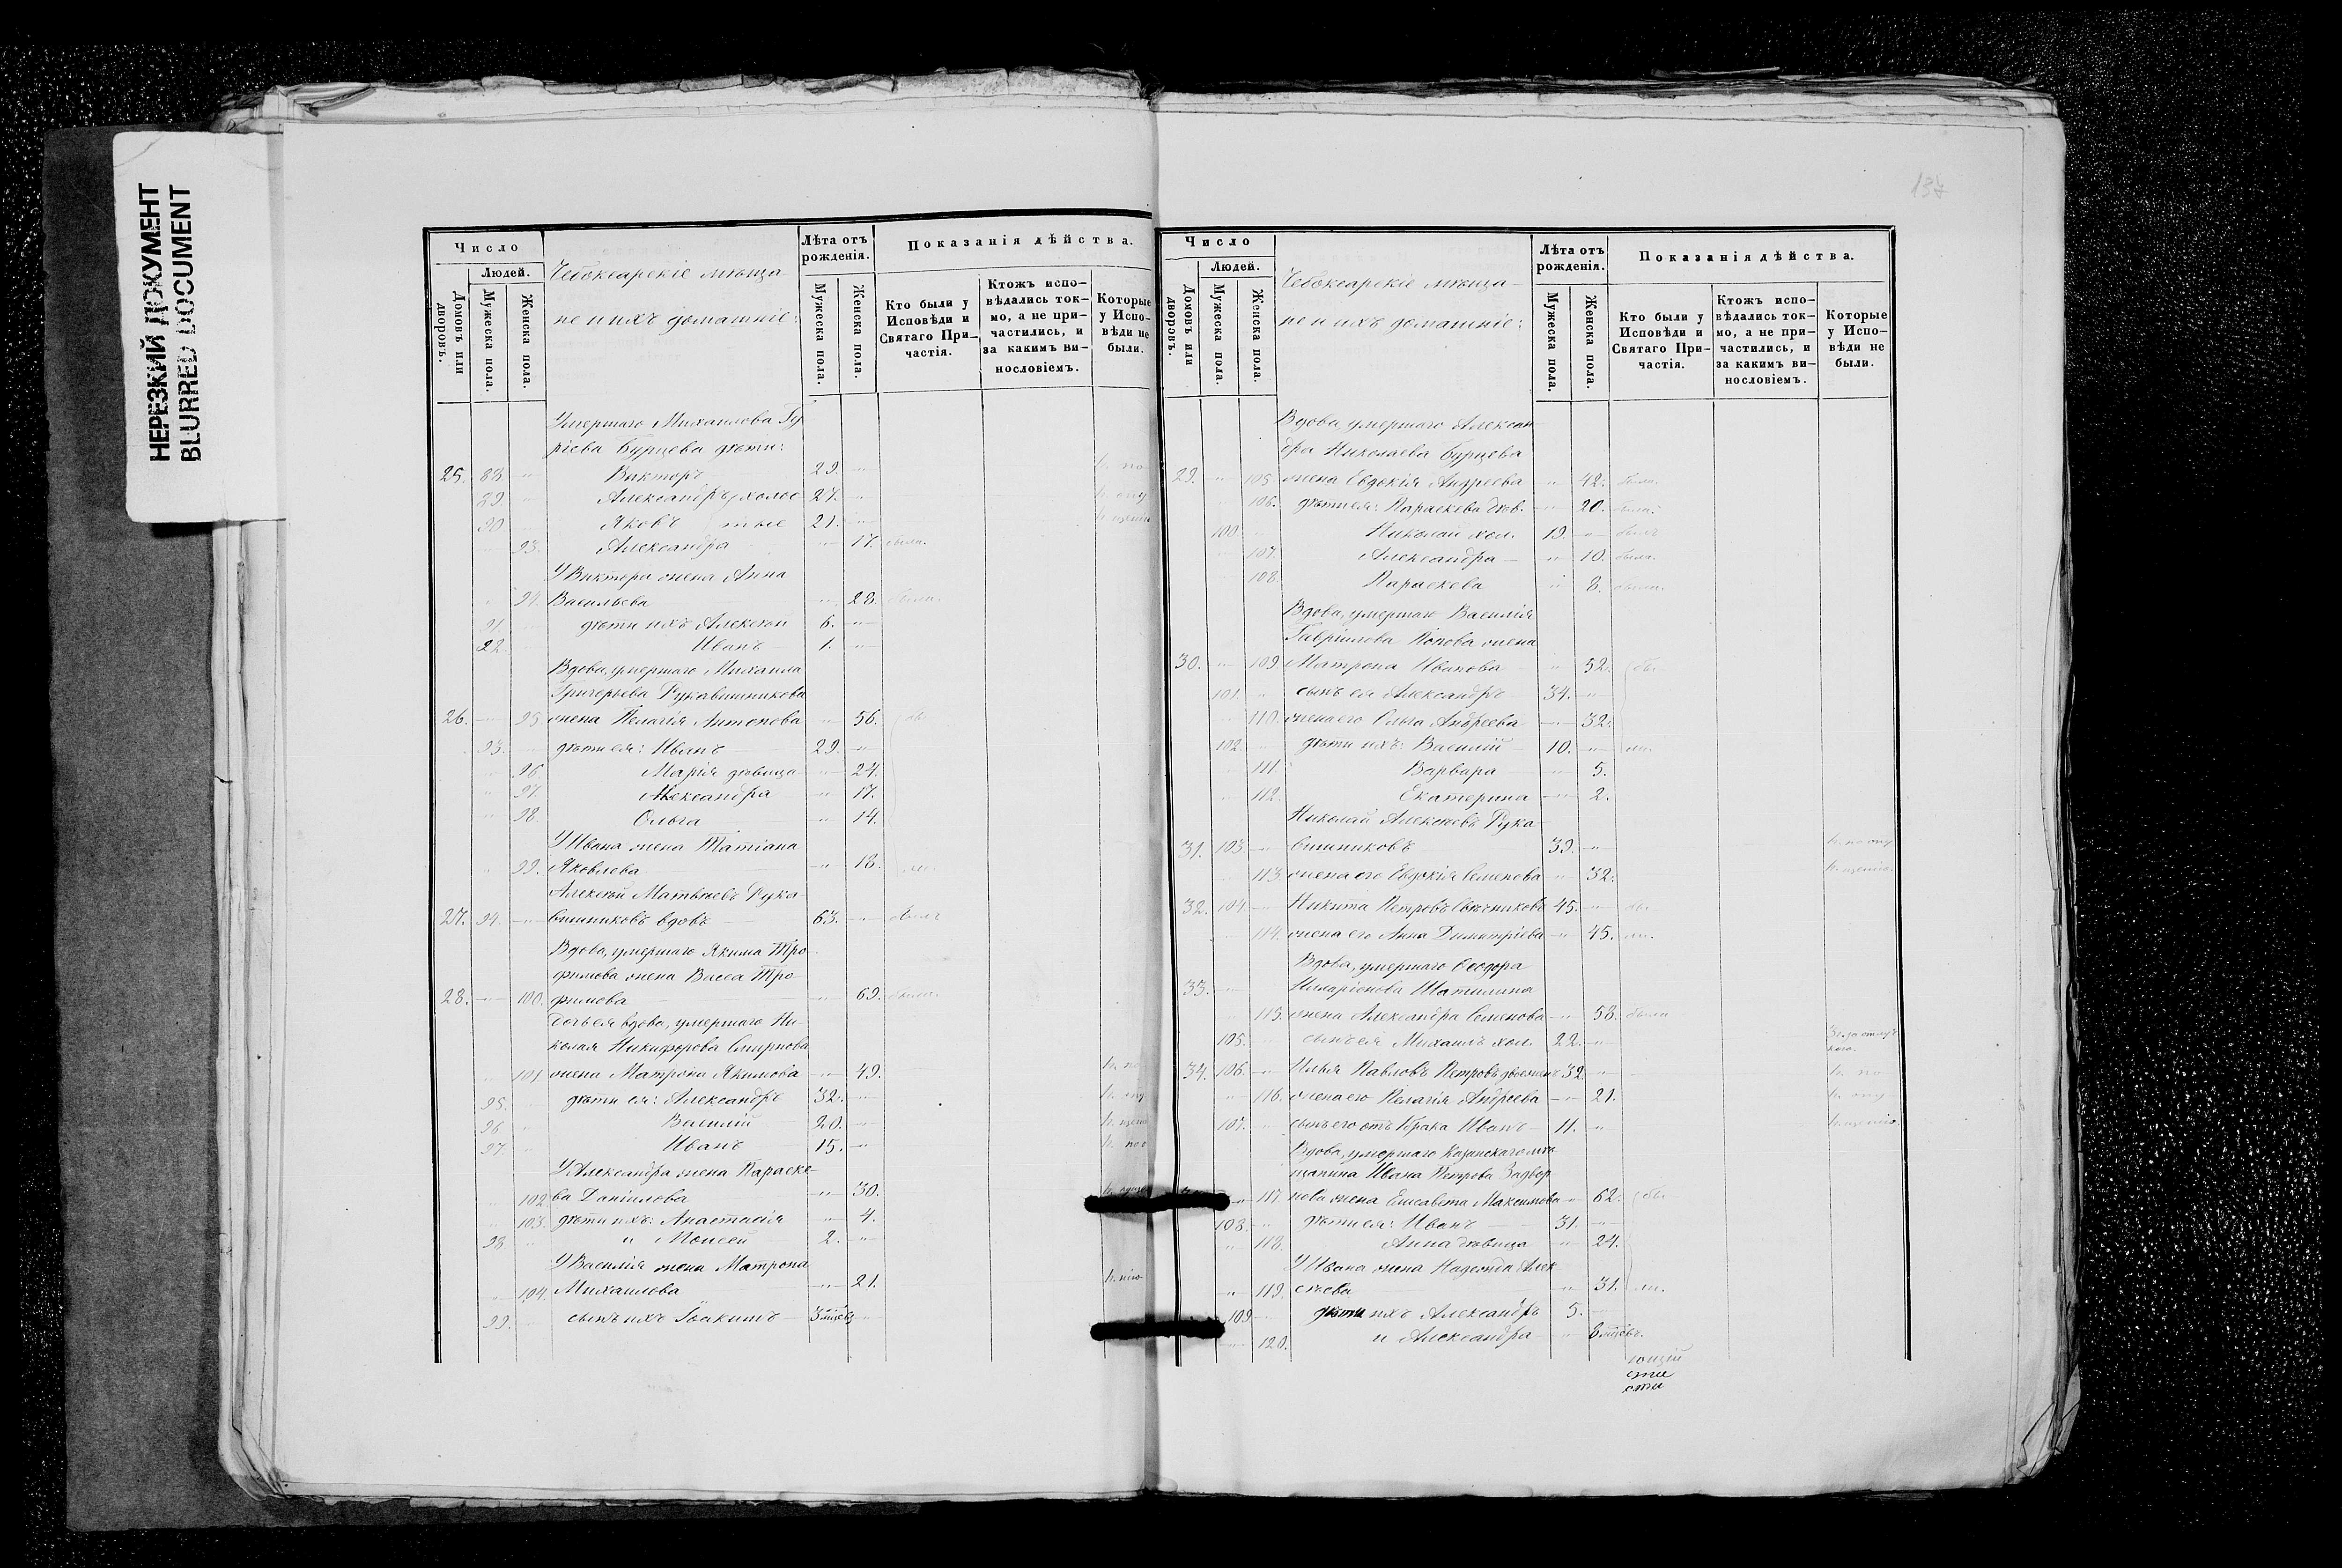 НЕРЕЗКИЙ ДОКУМЕНТ
BLURRED DOCUMENT
Число
Людей.
Домовъ или дворовъ.
Мужеска пола.
Женска пола.
Чебоксарскіе мѣща-
не и ихъ домашніе:
Лѣта отъ рожденія.
Мужеска пола.
Женска пола.
Показанія дѣйства.
Кто были у Исповѣди и Святаго При-частія.
Ктожъ испо-вѣдались ток-мо, а не при-частились, и за какимъ ви-нословіемъ.
Которые у Испо-вѣди не были.
Умершаго Михаилова Гу
ріева Бурцева дѣти:
25. 88. Викторъ 29. н. по
89. Александръ холос 27. н. опу
90 Яковъ тые 21. н. щенію
93. Александра 17. была.
У Виктора жена Анна
94. Васильева 28. была.
91. дѣти ихъ Алексѣй 6.
92. Иванъ 1.
Вдова, умершаго Михаила
Григорьева Рукавишникова
26. 95 жена Пелагія Антонова 56. бы
93. дѣти ея: Иванъ 29.
96 Марія дѣвица 24.
97. Александра 17.
98. Ольга 14.
У Ивана жена Татіана
99. Яковлева 18. ли.
Алексѣй Матвѣевъ Рука-
27. 94. вишниковъ вдовъ 63. былъ
Вдова, умершаго Якима Тро-
фимова жена Васса Тро
28. 100. фимова 69. была.
Дочь ея вдова, умершаго Ни-
колая Никифорова Смирнова
101 жена Матрона Якимова 49. н. по
95. дѣти ея: Александръ 32. н. опу
96 Василій 20. н. щенію
97. Иванъ 15. н. по о
У Александра жена Параске-
102 ва Даніилова 30.
103. дѣти ихъ: Анастасія 4.
98 и Моисей 2.
У Василія жена Матрона
104. Михаилова 21. н. нію
99. сынъ ихъ Іоакимъ 3 мѣсѣц
137
Число
Людей.
Домовъ или дворовъ.
Мужеска пола.
Женска пола.
Чебоксарскіе мѣща-
не и ихъ домашніе:
Лѣта отъ рожденія.
Мужеска пола.
Женска пола.
Показанія дѣйства.
Кто были у Исповѣди и Святаго При-частія.
Ктожъ испо-вѣдались ток-мо, а не при-частились, и за какимъ ви-нословіемъ.
Которые у Испо-вѣди не были.
Вдова, умершаго Алексан-
дра Николаева Бурцева
29. 105 жена Евдокія Андреева 42. была.
106. дѣти ея: Параскева дѣв. 20. была.
100 Николай хол. 19. былъ
107. Александра 10. была.
108. Параскева 8. была.
Вдова, умершаго Василія
Гавріилова Попова жена
30. 109 Матрона Иванова 52. бы
101. сынъ ея Александръ 34.
110. жена его Ольга Андреева 32.
102. дѣти ихъ: Василій 10. ли.
111. Варвара 5.
112. Екатерина 2.
Николай Алексѣевъ Рука
31. 103. вишниковъ 39. н. по опу
113 жена его Евдокія Семенова 32. н. щенію.
32. 104. Никита Петровъ Свѣчниковъ 45. бы
114. жена его Анна Димитріева 45. ли.
Вдова, умершаго Ѳеодора
33. Иларіонова Шатилина
115. жена Александра Семенова 58. была
105. сынъ ея Михаилъ хол. 22.
34. 106. Илья Павловъ Петровъ двоежен 32 н. по
116. жена его Пелагія Андреева 21. н. опу
107. сынъ его отъ 1 брака Иванъ 11. н. щенію.
Вдова, умершаго Казанскаго мѣ
щанина Ивана Петрова Задвор
117. нова жена Елисавета Максимова 62. бы
108. дѣти ея: Иванъ 31.
118. Анна дѣвица 24.
У Ивана жена Надежда Алек
119. сѣева 31. ли.
109 дѣти ихъ Александръ 5.
120. и Александра 8 мѣсѣцъ.